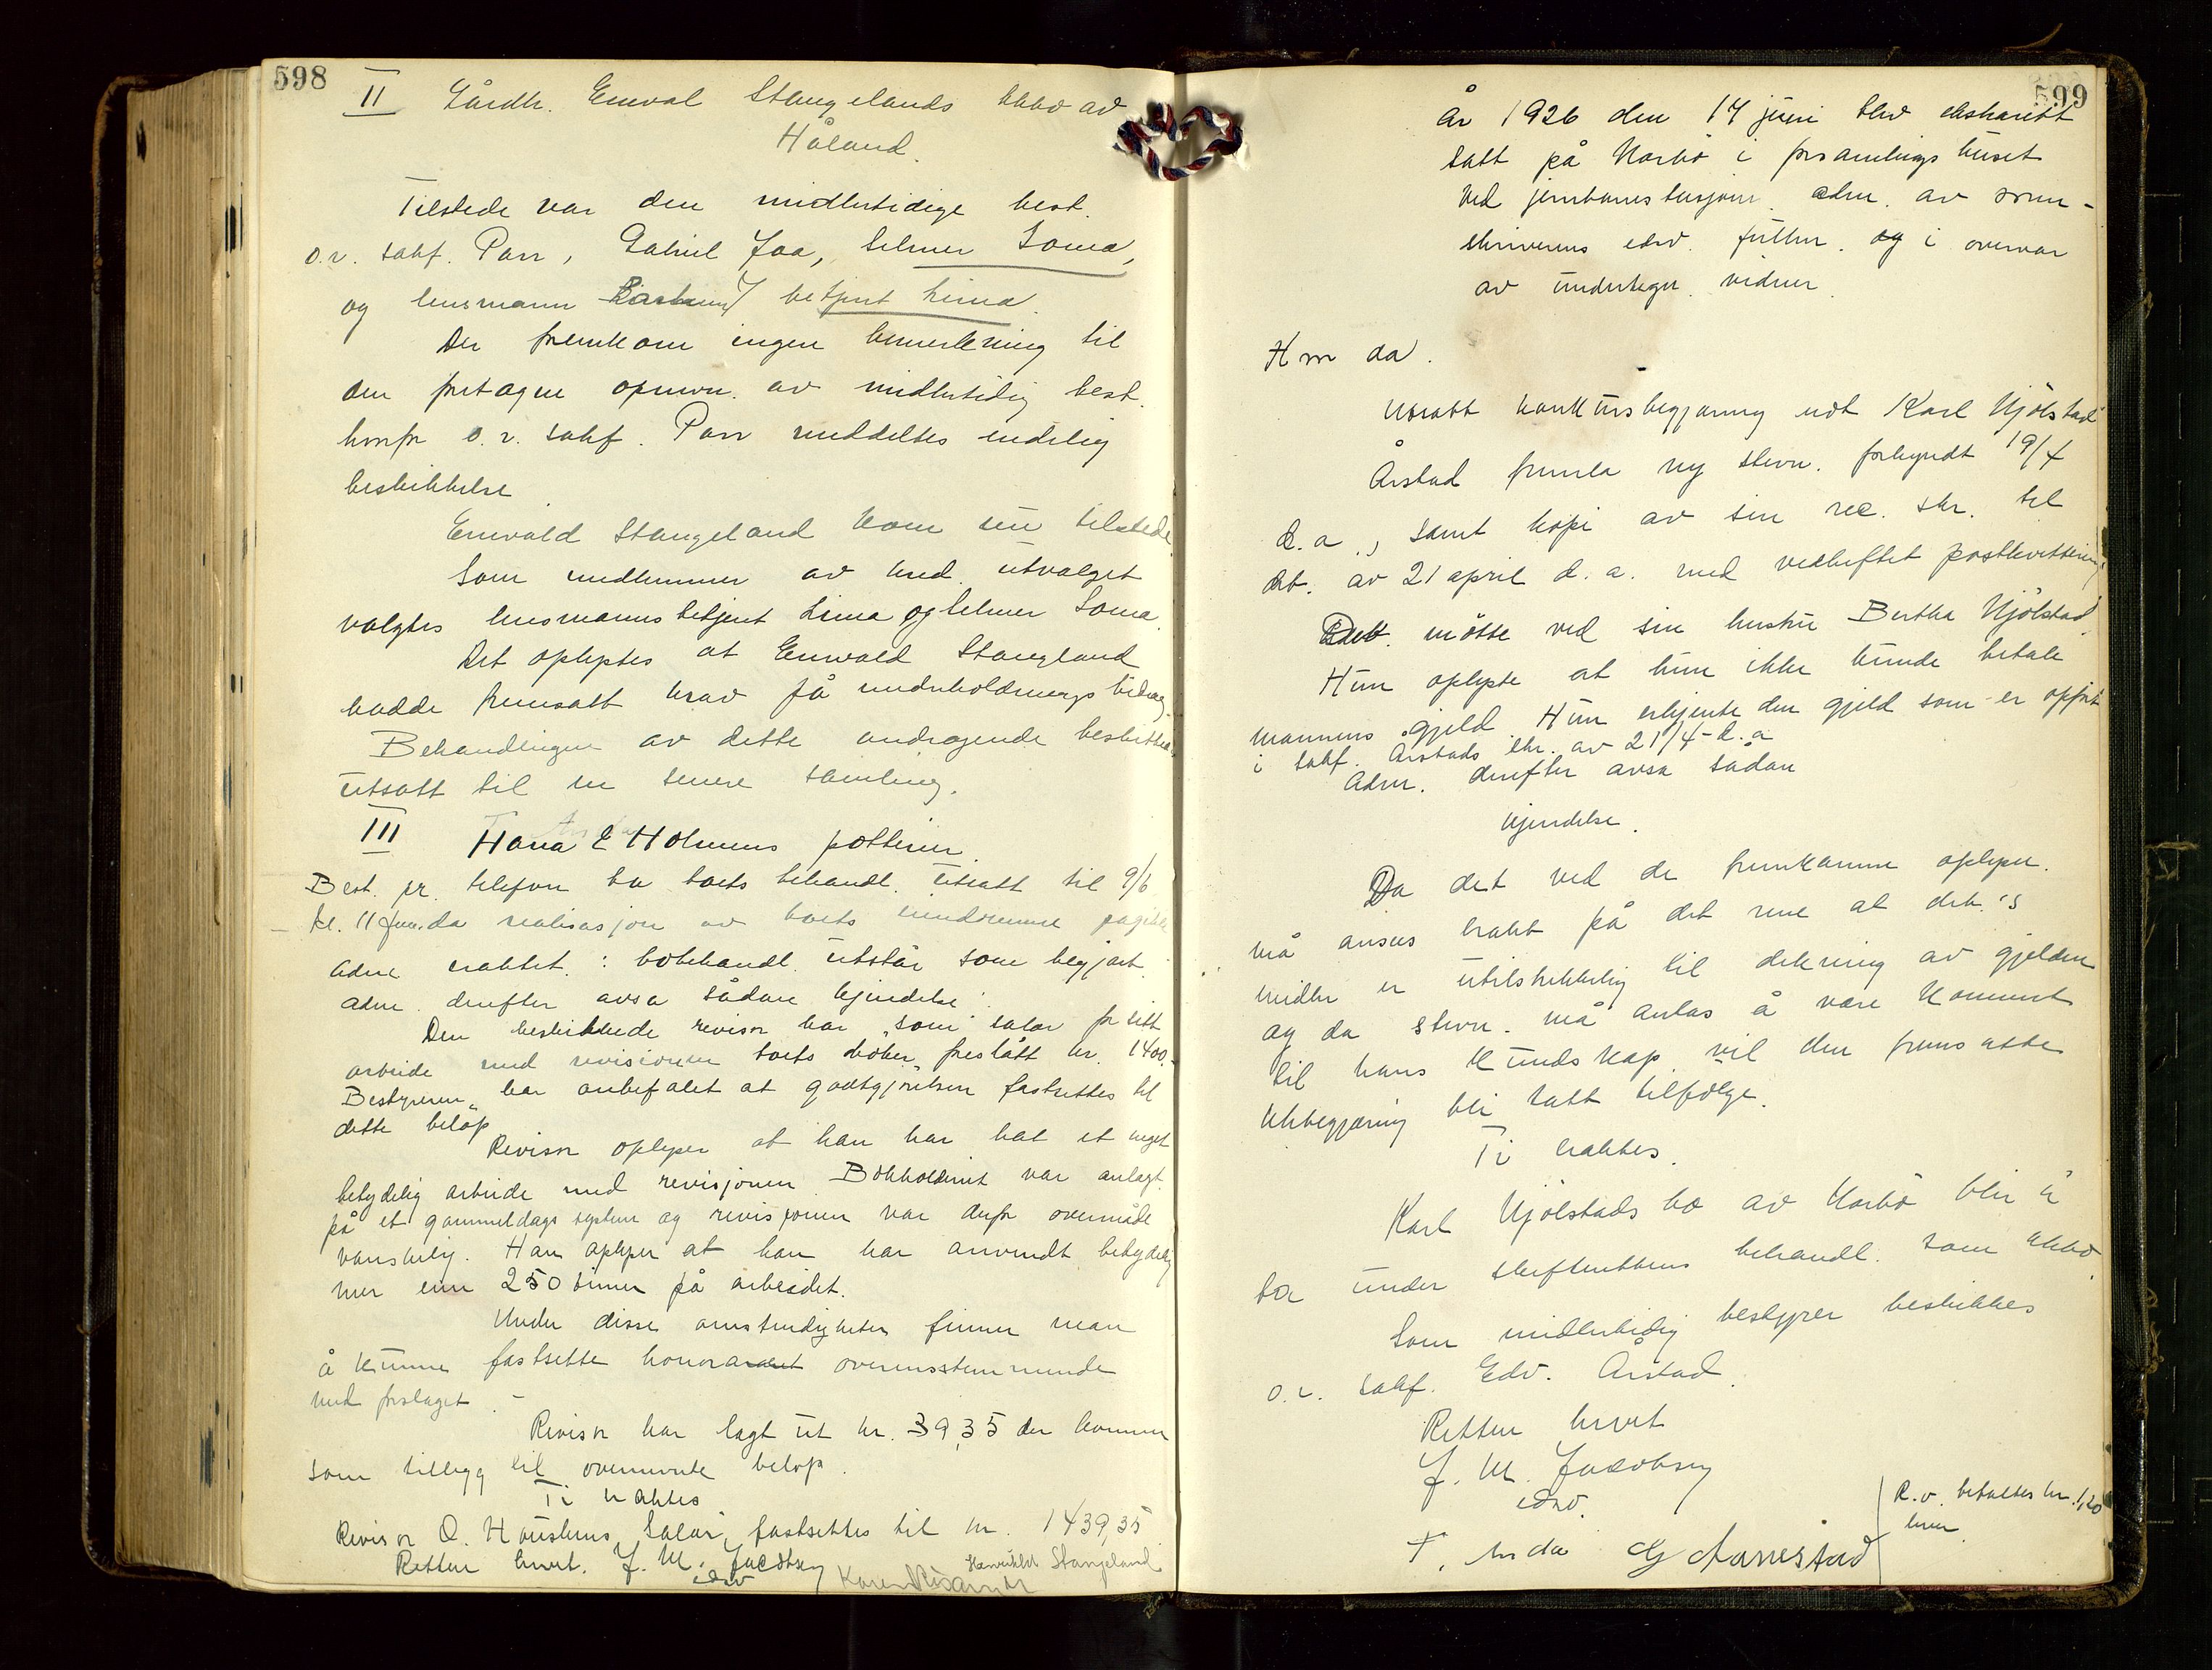 598
II Gårdbr. Enevald Stangelands kkbo av
Håland.
Tilstede var den midlertidige best.
o.r. sakf. Parr, Gabriel Joa, Selmer Soma,
og lensmann betjent Lima.
Der fremkom ingen bemerkning til
den foretagne opnevn. av midlertidig best.
hvorfor o.r. sakf. Parr meddeltes endelig
beskikkelse
Enevald Stangeland kom nu tilstede
Som medlemmer av kred. utvalget
valgtes lensmannsbetjent Lima og Selmer Soma.
Det oplystes at Enevald Stangeland
hadde fremsatt krav på underholdnings bidrag.
Behandlingen av dette andragende besluttedes
utsatt til en senere samling.
III Hana & Holmens potteri
Best. pr. telefon ba boets behandl. utsatt til 9/6
kl. 11 fm. da realisasjon av boets eiendomme pågikk
Adm. traktet: bobehandl. utstår som begjært.
Adm. derefter avsa sådan kjendelse:
Den beskikkede revisor har som salær for sitt
arbeide med revisionen boets bøker foreslått kr. 1400.-
Bestyreren har anbefalet at godtgjørelsen fastsettes til
dette beløp
Revisor oplyser at han har hat et meget
betydelig arbeide med revisjonen. Bokholderiet var anlagt
på et gammeldags system og revisjonen var derfor overmåde
vanskelig. Han oplyser at han har anvendt betydelig
mer enn 250 timer på arbeidet.
Under disse omstendigheter finner man
å kunne fastsette honoraret overensstemmende
med forslaget.
Revisor har lagt ut kr. 39,35 der kommer
som tillegg til ovennevnte beløp.
Ti traktes
Revisor O. Haustens salær fastsettes til kr. 1439,35
Retten hevet. J. M. Jacobsen
edsv
Stangeland
599
År 1926 den 14 juni blev ekstrarett
satt på Nærbø i forsamlingshuset
ved jernbanestasjonen. Adm. av soren-
skriverens edsv. fullm. og i overvær
av undertegn. vidner
Hvor da.
Utsatt konkursbegjæring mot Karl Njölstad
Årstad fremla ny stevn. forkyndt 19/4
d.a., samt kopi av sin rec. skr. til
deb. av 21 april d.a. med vedheftet postkvittering
Deb. møtte ved sin hustru Bertha Njölstad.
Hun oplyste at hun ikke kunde betale
mannens gjeld. Hun erkjente den gjeld som er opført
i sakf. Årstads skr. av 21/4-d.a
Adm. derefter avsa sådan
kjendelse.
Da det ved de fremkomne oplysn.
må ansees bragt på det rene at deb.'s
midler er utilstrekkelig til dekning av gjelden
og da stevn. må antas å være kommet
til hans kundskap vil den fremsatte
kkbegjæring bli tatt tilfølge.
Ti traktes.
Karl Njölstads bo av Nærbø blir å
ta under skifterettens behandl. som kkbo.
Som midlertidig bestyrer beskikkes
o.r. sakf. Edv. Årstad.
Retten hevet
J. M. Jacobsen
edsv.
R.v. betaltes kr. 1,20
hver